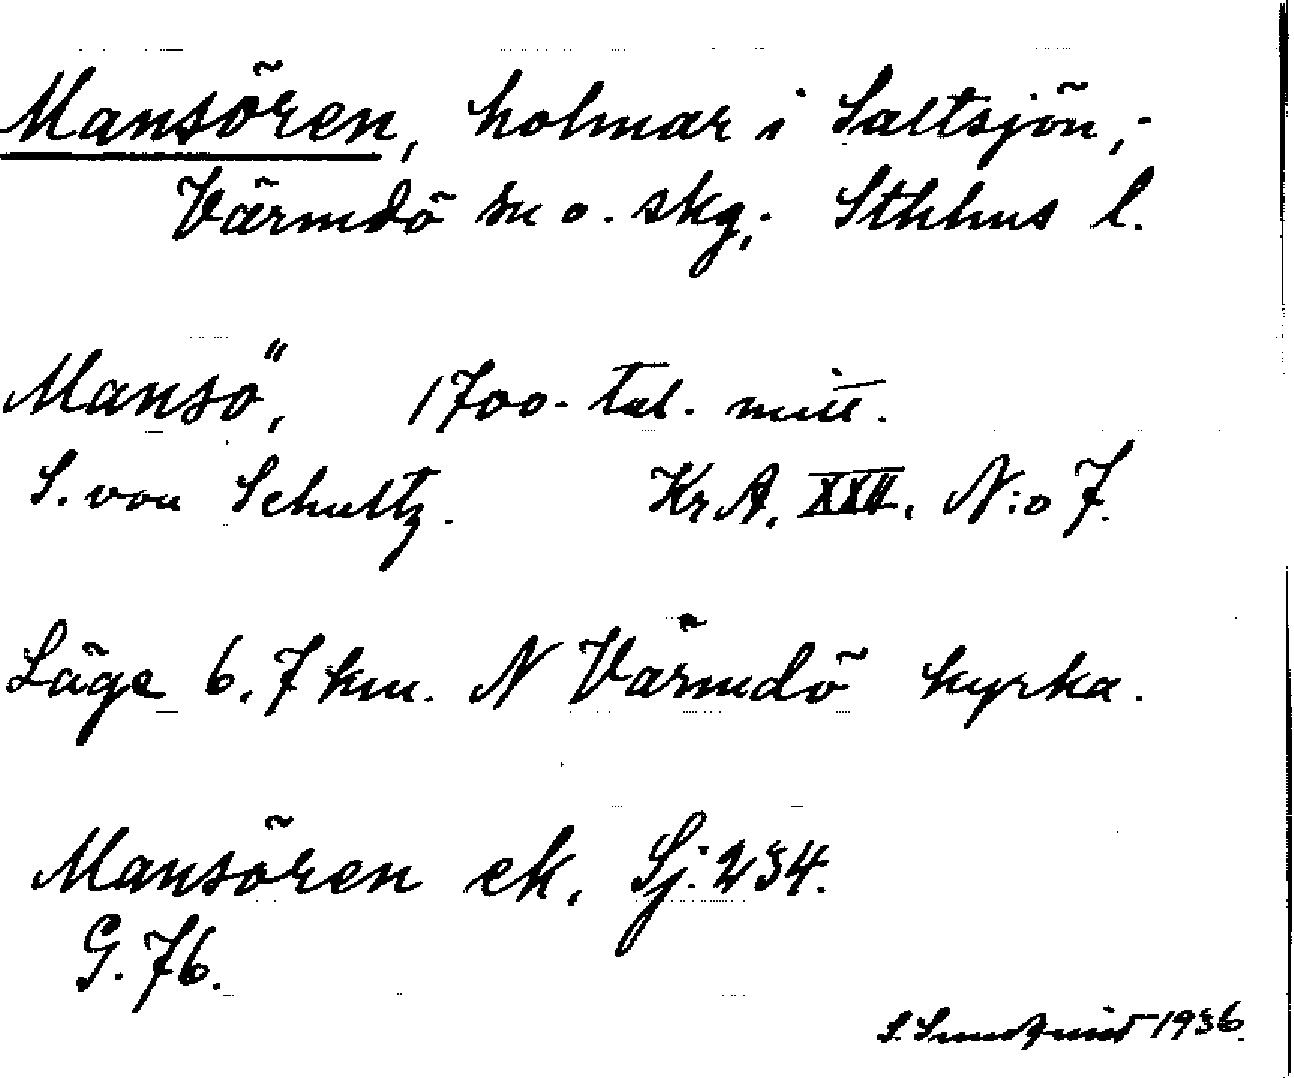 Mansören, holmar i Saltsjön,-
Värmdö sn o. skg,. Sthlms l.
Mansö, 1700-tal. mitt.
S. von Schultz. KrA. XXII. N:o 7.
Läge 6.7 km. N Värmdö kyrka.
Mansören ek. Sj. 234.
G. 76.
S. Sundqvist 1936.